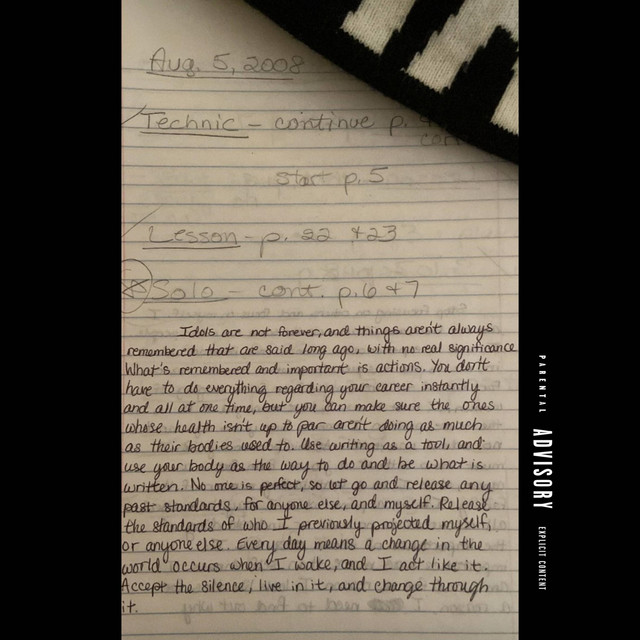 Aug. 5, 2008
Technic - continue p.
start p.5
Lesson - p. 22 +23
Solo - cont. p.6 +7
Idols are not forever, and things aren't always
remembered that are said long ago, with no real significance
What's remembered and important is actions. You don't
have to do everything regarding your career instantly
and all at one time, but you can make sure the ones
whose health isn't up to par aren't doing as much
as their bodies used to. Use writing as a tool, and
use your body as the way to do and be what is
written. No one is perfect, so let go and release any
past standards, for anyone else, and myself. Release
the standards of who I previously projected myself,
or anyone else. Every day means a change in the
world occurs when I wake, and I act like it.
Accept the silence, live in it, and change through
it.
PARENTAL ADVISORY EXPLICIT CONTENT